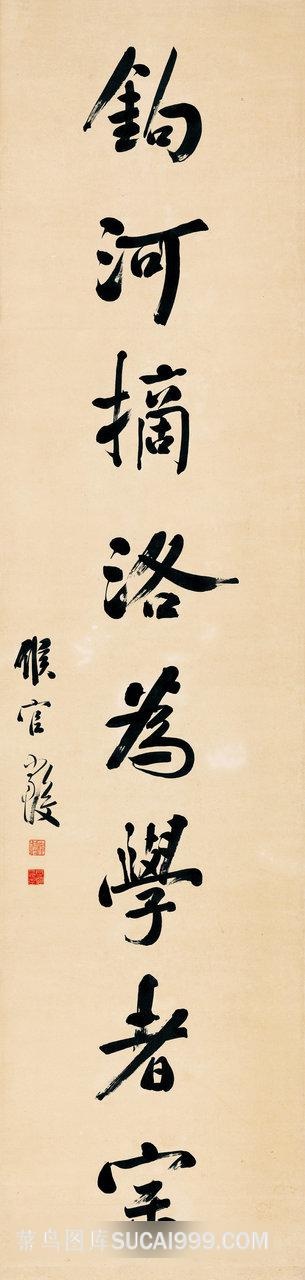 鉤河摘洛為學者宗
侯官
菜鸟图库SUCAI999.COM